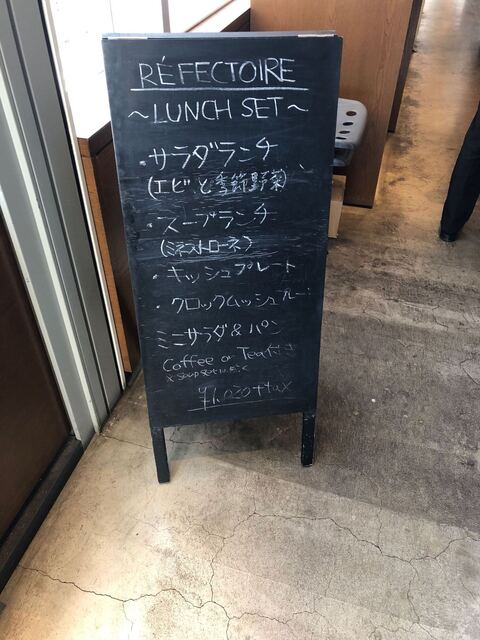 RÉFECTOIRE
~LUNCH SET~
・サラダランチ
(エビと季節野菜)
・スープランチ
(ミネストローネ)
・キッシュプレート
・クロックムッシュプレート
ミニサラダ&パン
Coffee or Tea付き
¥1,030+tax